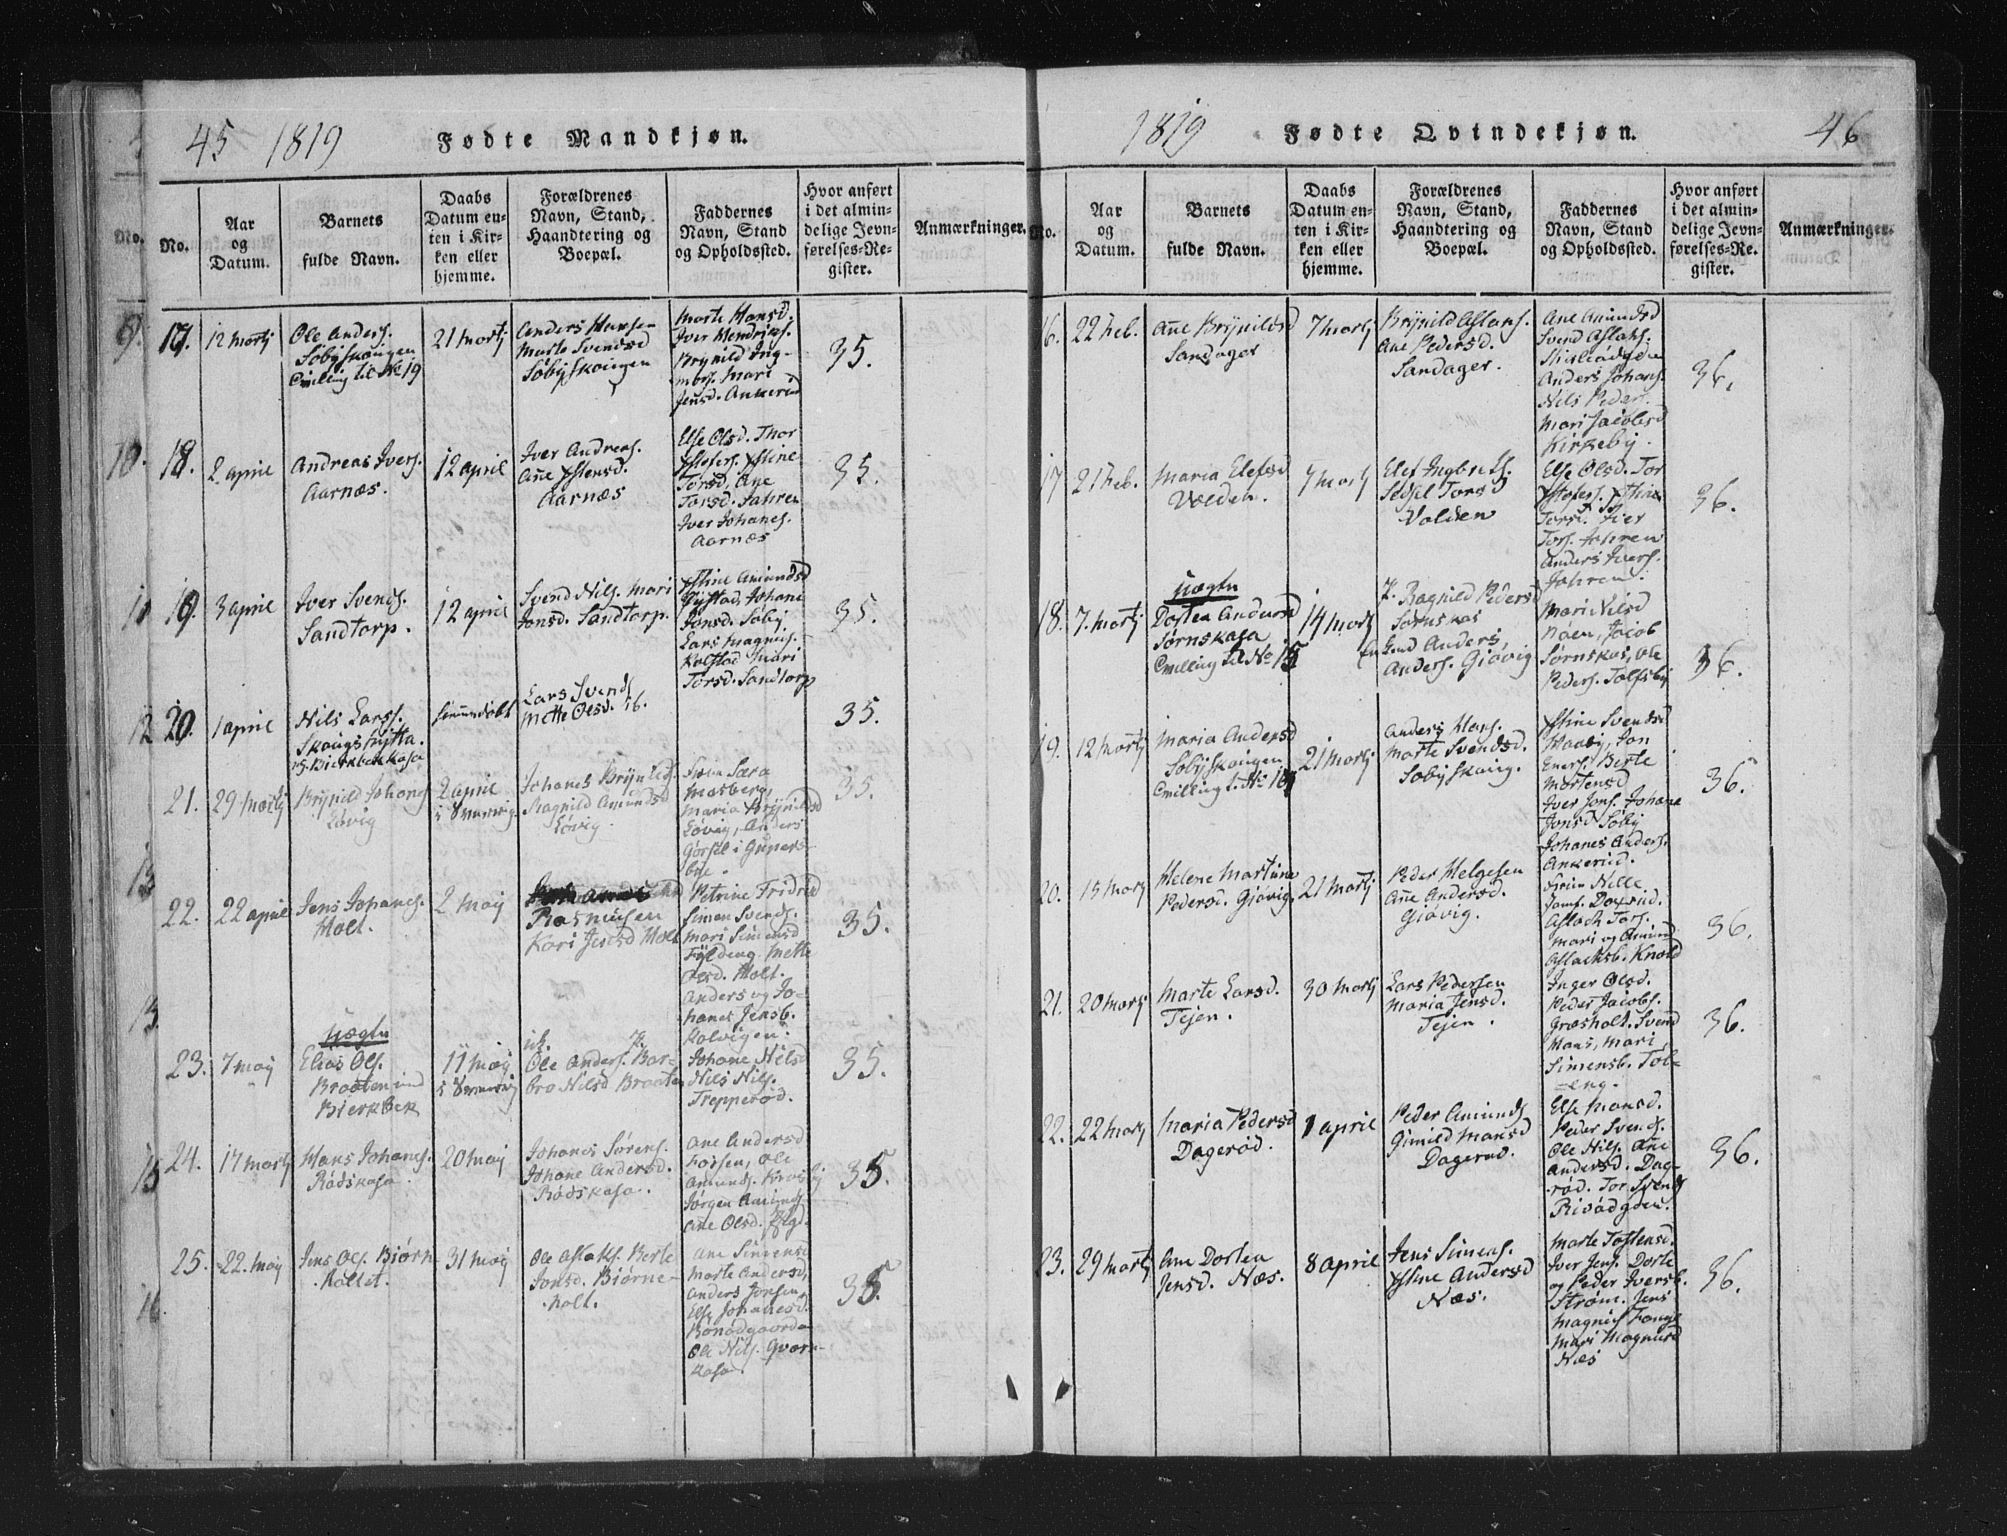 45 1819 Fødte Mandkjøn.
No.
Aar
og
Datum.
Barnets
fulde Navn.
Daabs
Datum en-
ten i Kir-
ken eller
hjemme.
Forældrenes
Navn, Stand,
Haandtering og
Boepæl.
Faddernes
Navn, Stand
og Opholdssted.
Hvor anført
i det almin-
delige Jevn-
førelses-Re-
gister.
Anmærkninger.
12 Martj
Ole Anders.
Søbyskougen
Tvilling til No 19
21 Martj
Anders Hanse-
Marte Svendsd
Søbyskougen
Marte Hansd.
Iver Hendriks.
Brynild Ing-
Mari
Jensd. Ankerud
35.
18.
2 april
Andreas Ivers.
Aarnæs.
12 april
Iver Andreas.
Aarnæs
Else Olsd. Thor
Torsd. Ane
Torsd. Jahren
Iver Johanes.
Aarnæs
35.
19.
3 april
Iver Svends.
Sandtorp.
12 april
Svend Nils. Mari
Jonsd. Sandtorp.
Johane
Jonsd. Søby.
Lars Magnus.
Kolstad Mari
Torsd. Sandtorp
35.
20.
1 april
Nils Larss.
Lars Svends.
Mette Olsd. ib.
35.
21.
29 Martj
Brynild Johans
Løvig
2 april
Johanes Brynilds.
Ragnild Amundsd
Løvig.
Maria Brynildsd
Løvig, Anders
35.
22.
22 april
Jens Johanes.
Holt.
2 Maij
Rasmusen
Kari Jensd Holt
Petrine Fridrisd
Simen Svends.
Mari Simensd
Mette
Olsd. Holt.
Anders og Jo-
hanes Jensb.
Kolvigen.
35.
23.
7 Maij
Uægte
Elias Ols.
Braaten und
Bierkbek
11 Maij
Ole Anders. Bar-
bro Nilsd Braaten
Johane Nilsd
Nils Nils.
Trepperød.
35.
24.
17 Martj
Hans Johanes.
Rødskasa.
20 Maij
Johanes Sørens.
Johane Andersd.
Rødskasa.
Ane Andersd
Fossen, Ole
Amunds.
Jørgen Amunds
Ane Olsd.
35.
25.
22. Maij
Jens Ols. Biørn
Kollet.
31 Maij
Ole Aslaks. Berte
Jonsd. Biørne-
holt.
Ane Simensd
Marte Andersd,
Anders Jonsen,
Else Johanesd.
Ole Nils. Qvern-
kasa.
35.
1819 Fødte Qvindekjøn. 46
No.
Aar
og
Datum.
Barnets
fulde Navn.
Daabs
Datum en-
ten i Kir-
ken eller
hjemme.
Forældrenes
Navn, Stand,
Haandtering og
Boepæl.
Faddernes
Navn, Stand
og Opholdssted.
Hvor anført
i det almin-
delige Jevn-
førelses-Re-
gister.
Anmærkninger.
16.
22 Feb.
Ane Brynildsd
Sandager
7 Martj
Brynild Aslaks.
Ane Pedersd.
Sandager.
Ane Amundsd
Svend Aslaks.
Anders Johans.
Nils Peders.
Mari Jacobsd
Kirkeby.
36.
17
21 Feb.
Maria Elefsd
Volden.
7 Martj
Elef Ingbrets.
Sidsel Torsd
Volden
Else Olsd. Tor
Tors. Jahren
Anders Ivers.
Jahren.
36.
18.
7. Martj
Uægte
Dorten Andersd
Tørnskasa
Tvilling til No 15
14 Martj
Ragnild Pedersd
Tørnskas
Anders
Anders. Giøvig
Mari Nilsd
Jacob
Tørnskas, Ole
Peders. Tolfsby
36.
19.
12 Martj
Maria Andersd
Søbyskougen
21 Martj
Anders Hans.
Marte Svendsd.
Søbyskoug.
Stine Svendsd
Haaby, Jon
Berte
Mortensd
Iver Jons. Johane
Jonsd Søby
Johanes Anders.
Ankerud.
36.
20.
15 Martj
Helene Martine
Pedersd. Giøvig
21 Martj
Peder Helgesen
Ane Andersd.
Giøvig.
Aslach Tors.
Mari og Amund
Aslachsb. Knold
36.
21.
20 Martj
Marte Larsd.
Tejen.
30 Martj
Lars Pedersen
Maria Jensd.
Tejen.
Inger Olsd.
Peder Jacobs.
Græsholt. Svend
Hans, Mari
Simensb. Tob-
-eng.
36.
22.
22 Martj
Maria Pedersd
Dagerød.
1 april
Peder Amunds
Gunild Hansd
Dagerød.
Else Hansd.
Peder Svends.
Ole Nils. Ane
Andersd. Dag-
rød. Tor Svends
36.
23.
29 Martj
Ane Dorten
Jensd. Næs.
8 april
Jens Simens.
Stine Andersd
Næs.
Marte Tostensd.
Iver Jens. Dorte
og Peder Iversb.
Strøm. Jens
Magnus
Mari Magnusd
Næs
36.